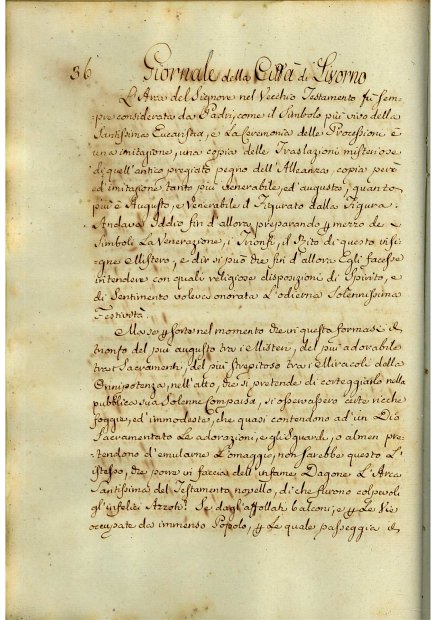 36 Giornale della Città di Livorno
L'Arca del Signore nel Vecchio Testamento fu sem-
pre considerata da Padri, come il Simbolo più vivo della
Santissima Eucaristia, e La Ceremonia delle Processioni è
una imitazione, una copia delle Traslazioni misteriose
di quell'antico pregiato pegno dell'Alleanza: copia però
ed imitazione tanto più venerabile, ed augusto, quanto
più è Augusto, e Venerabile il Figurato dalla Figura.
Andava Iddio fin d'allora preparando p mezzo de
Simboli La Venerazione, i Trionfi, il Rito di questo insi-
gne Mistero, e dir si può che fin d'allora Egli facesse
intendere con quali religiose disposizioni di Spirito, e
di Sentimento voleva onorata L'odierna Solennissima
Festività.
Ma se p sorte nel momento che in questa formasi il
trionfo del più augusto tra i Misteri, del più adorabile
tra i Sacramenti, del più strepitoso tra i Miracoli della
Onnipotenza, nell'atto, che si pretende di corteggiarlo nella
pubblica sua Solenne Comparsa, si osservassero certe ricche
foggie, ed immodeste, che quasi contendono ad un Dio
Sacramentato Le adorazioni, e gli Sguardi, o almen pre-
tendono d'emularne L'omaggio, non sarebbe questo L'
istesso, che porre in faccia dell'infame Dagone L'Arca
Santissima del Testamento novello, di che furono colpevoli
gl'infelici Azzoti? Se dagl'affollati balconi, e p Le Vie
occupate da immenso Popolo, p Le quale passeggia il